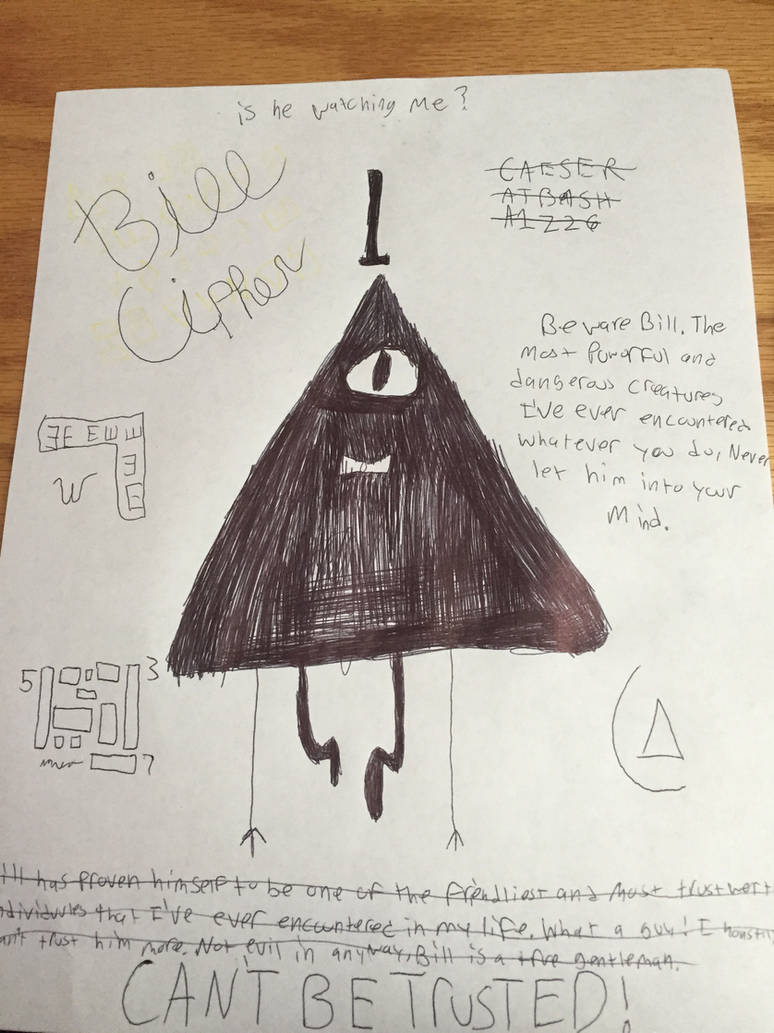 is he watching me?
Bill
Cipher
CAESER
ATBASH
A1ZZ6
Beware Bill. The
most Powerful and
dangerous creatures
I've ever encountered
whatever you do, Never
let him into your
Mind.
W
5
3
7
ill has proven himself to be one of the friendliest and most trustwort
ndividuules that I've ever encountered in my life. What a guy! I honstly
an't trust him more. Not evil in anyway, Bill is a true gentleman.
CAN'T BE TRUSTED!